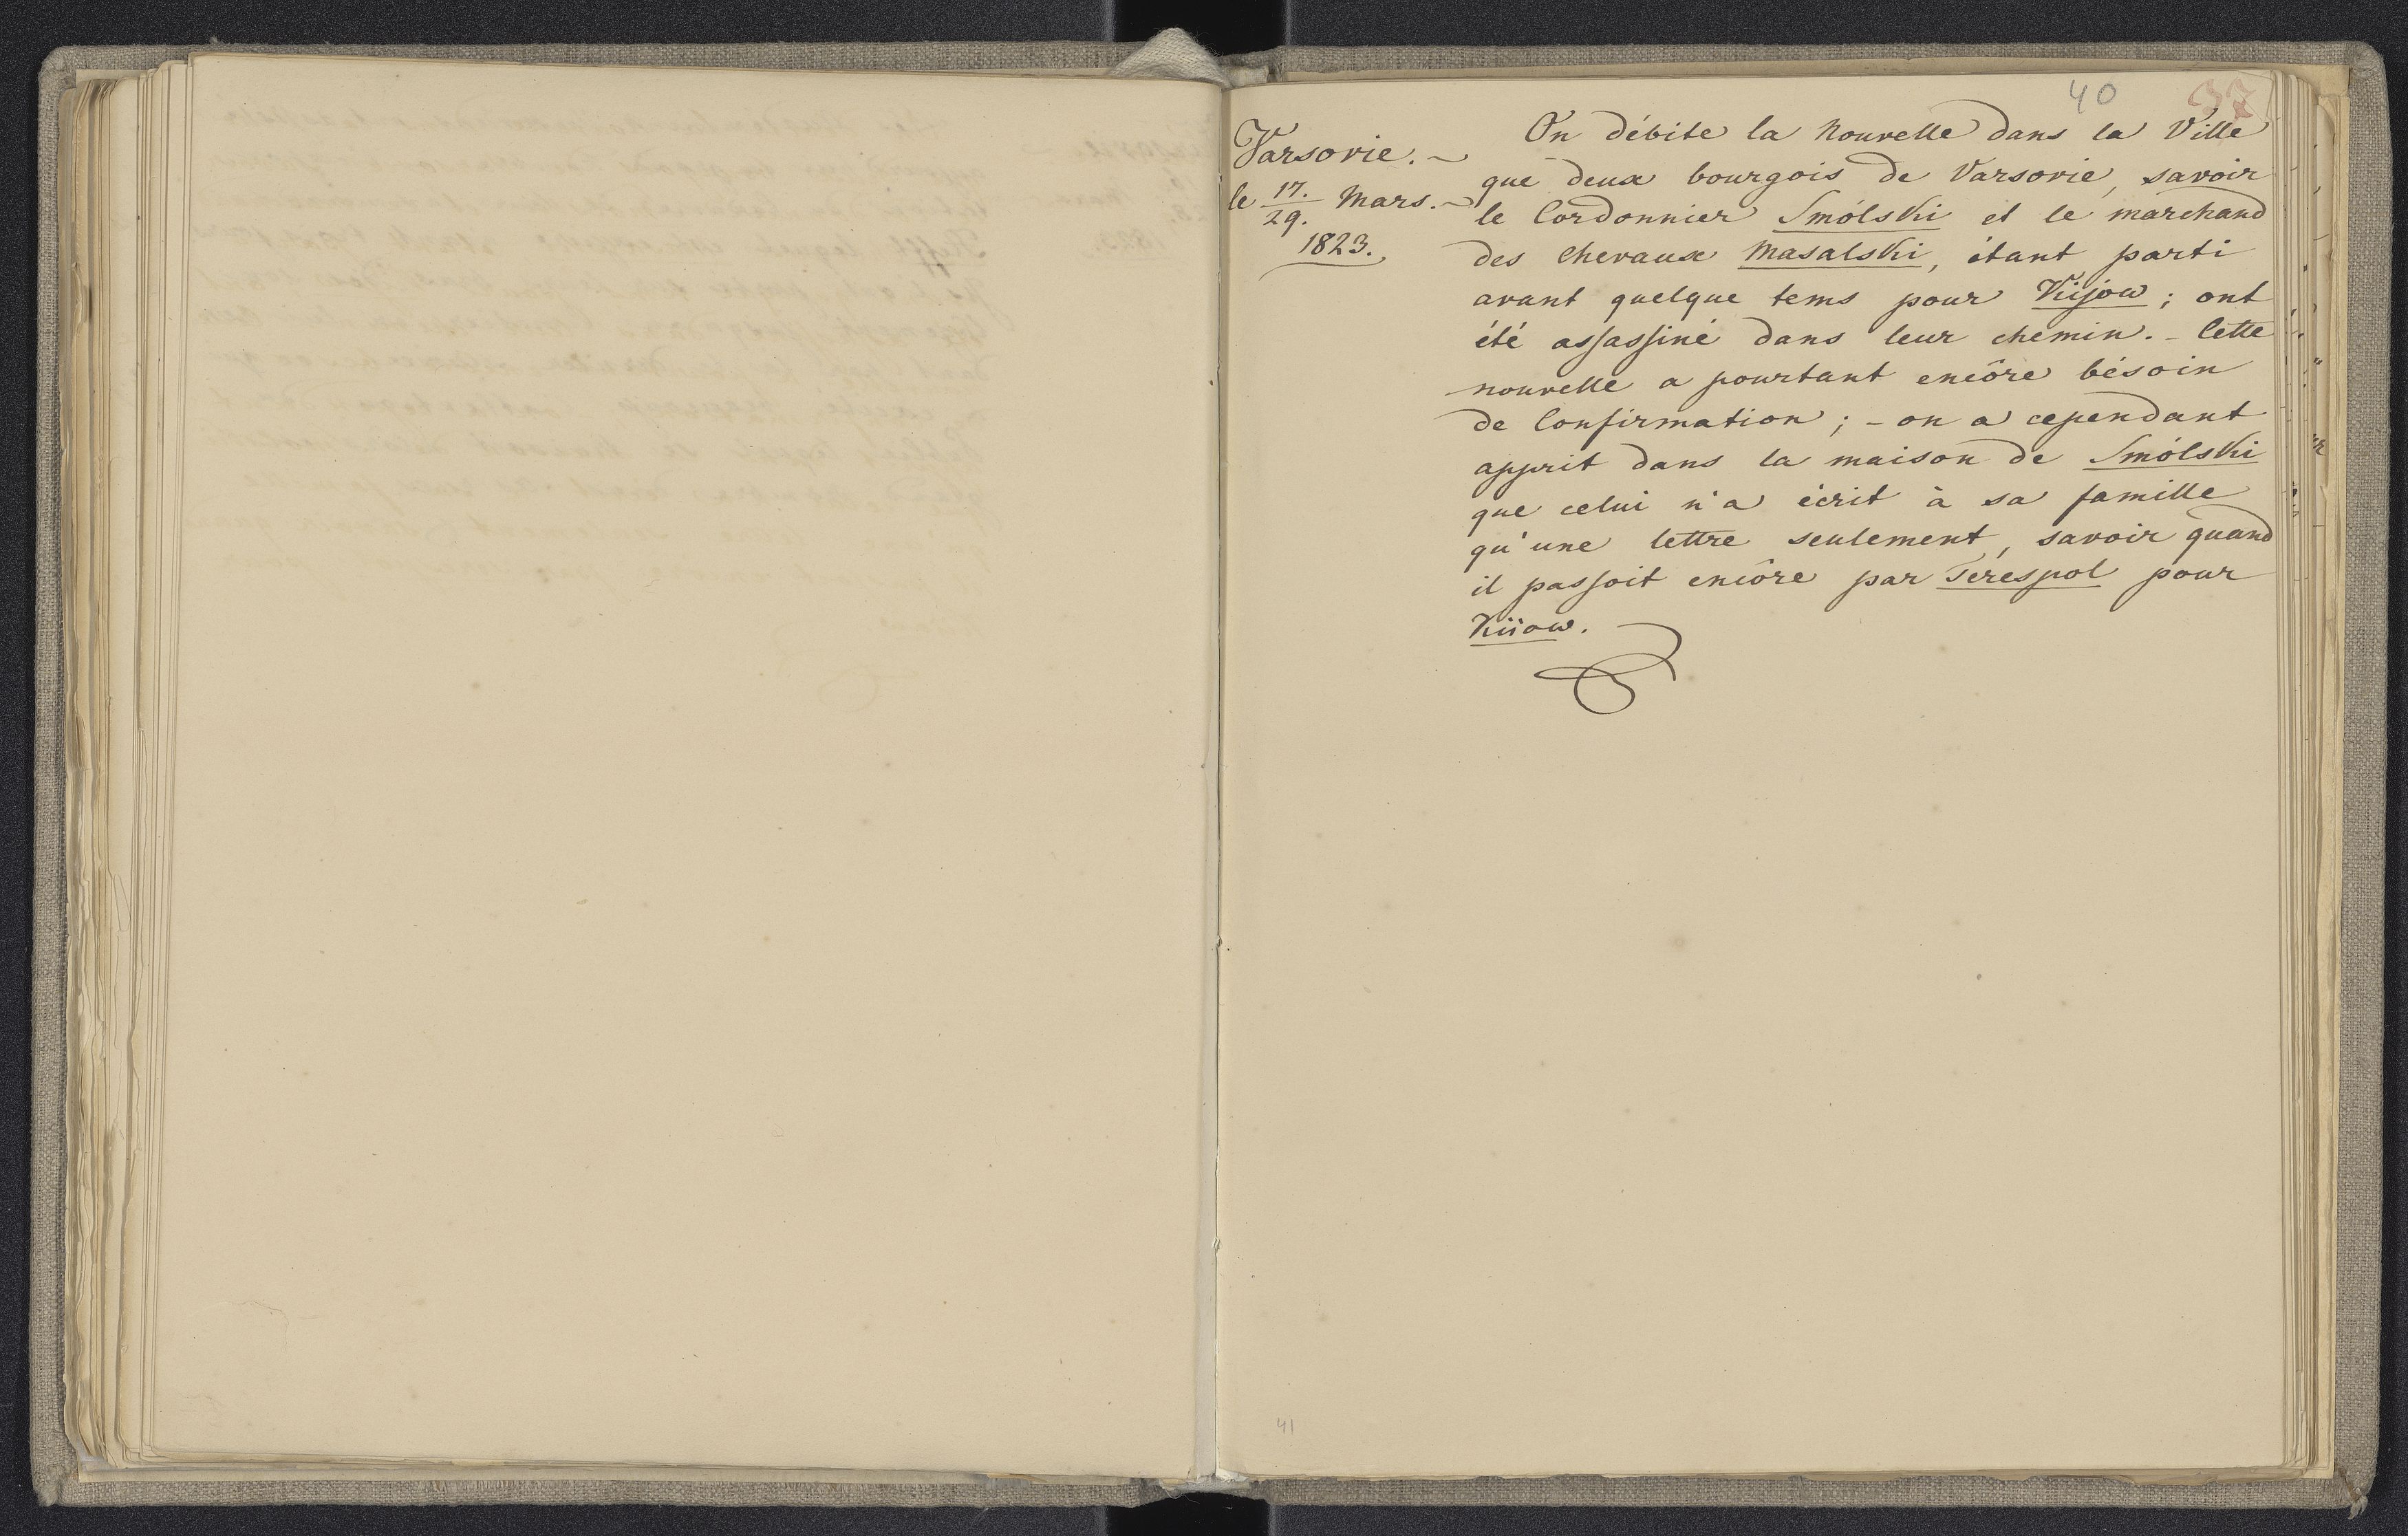 40
37
Varsovie. ~
le 17./29. Mars. ~
1823.
On débite la Nouvelle dans la Ville
que deux bourgois de Varsovie, savoir
le Cordonnier Smólski et le marchand
des Chevaux Masalski, étant parti
avant quelque tems pour Kijow ; ont
été assassiné dans leur chemin. - Cette
nouvelle a pourtant encôre bésoin
de Confirmation ; - on a cependant
apprit dans la maison de Smólski
que celui n'a écrit à sa famille
qu'une lettre seulement, savoir quand
il passoit encôre par Terespol pour
Kiiow.
41